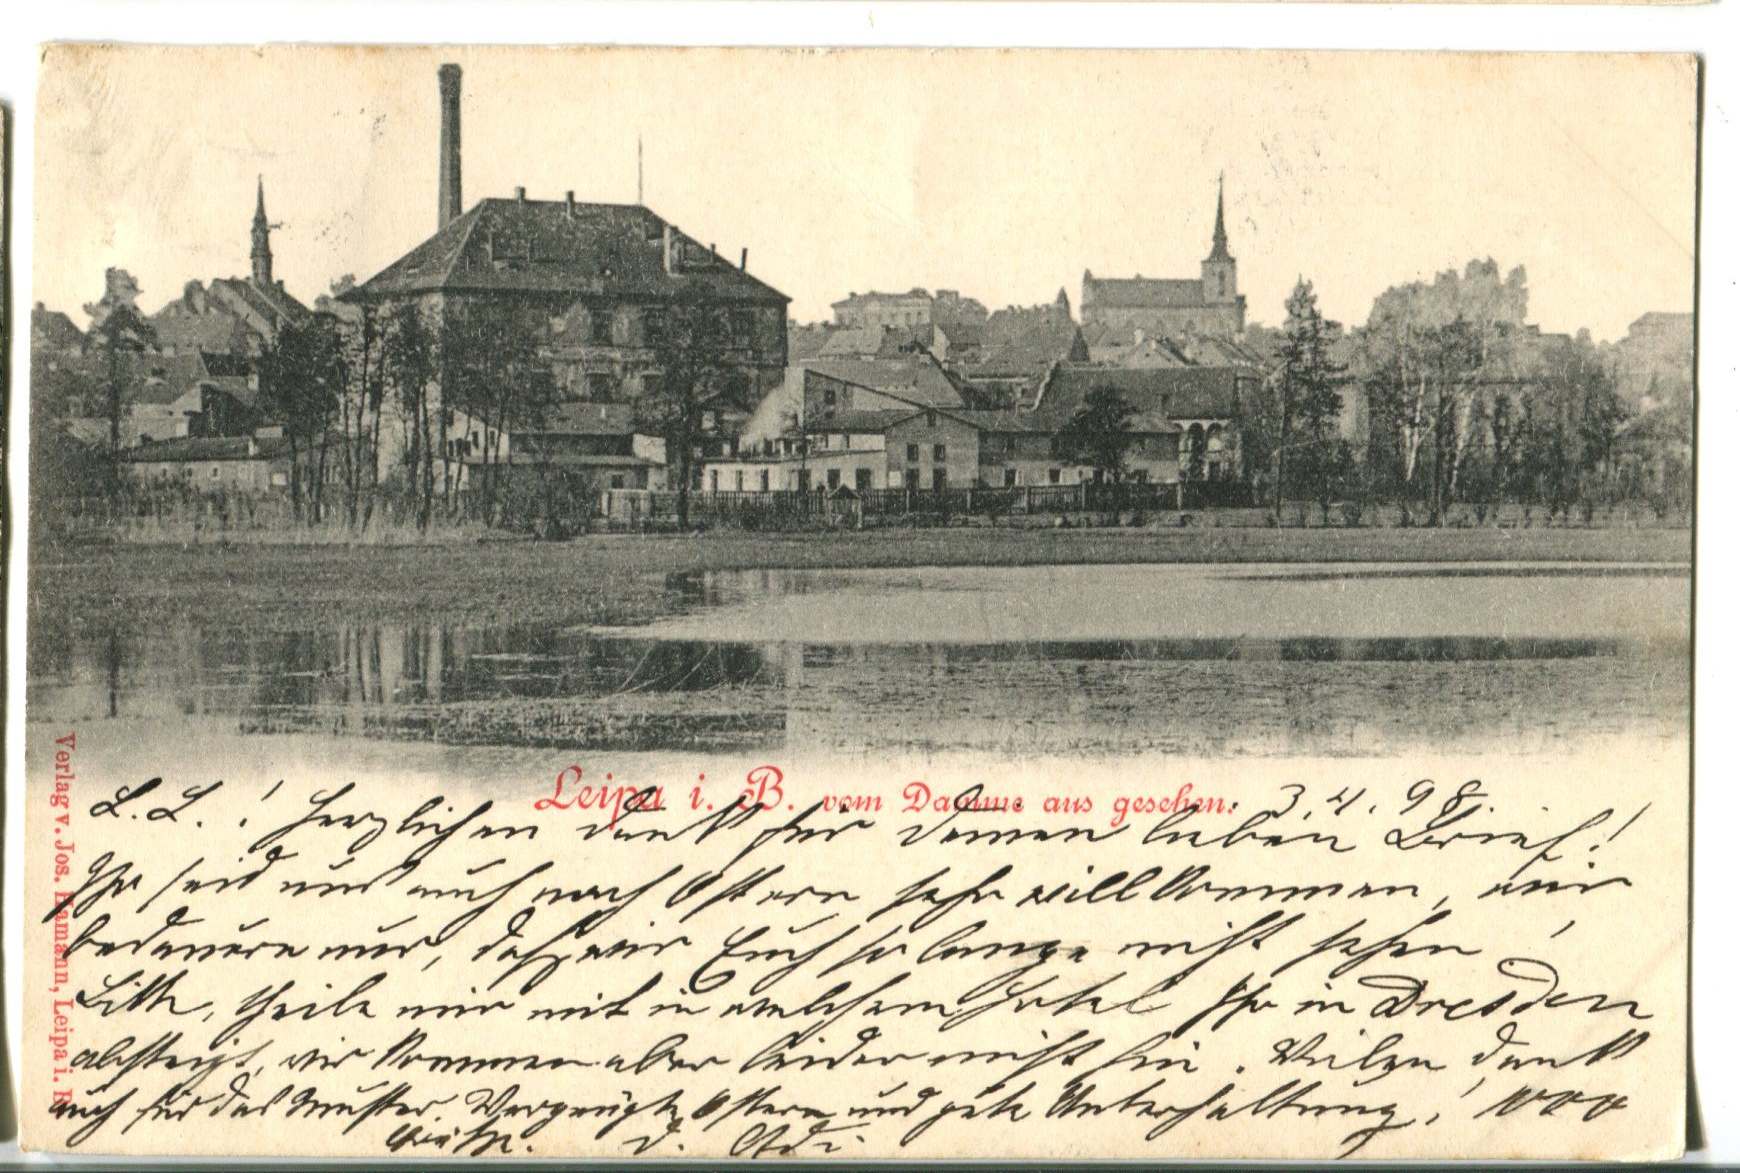 Leipa i. B. vom Damme aus gesehen.
3.4.98
L. L.! Herzlichen Dank für Deinen lieben Brief!
Ihr seid uns auch nach Ostern sehr willkommen, wir
bedauern nur, daß wir Euch so lange nicht sehen!
Bitte, theile mir mit in welchem Hotel Ihr in Dresden
absteigt, wir kommen aber leider nicht hin. Vielen Dank
auch für das Muster. Vergnügte Ostern und gute Unterhaltung! 1000
D.
Verlag v. Jos. Hamann, Leipa i. B.